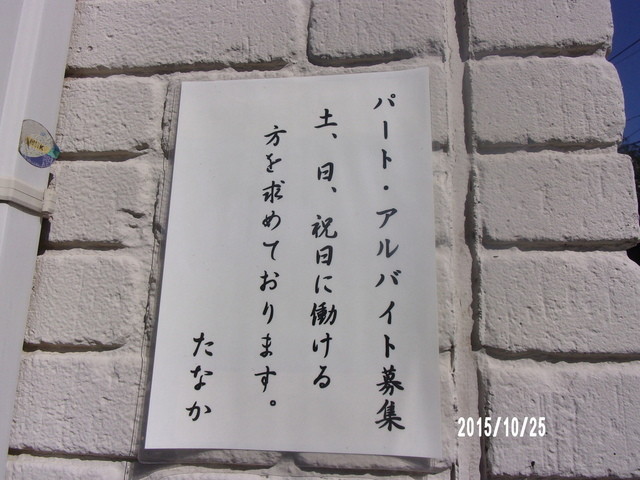 パート・アルバイト募集
土、日、祝日に働ける
方を求めております。
たなか
2015/10/25